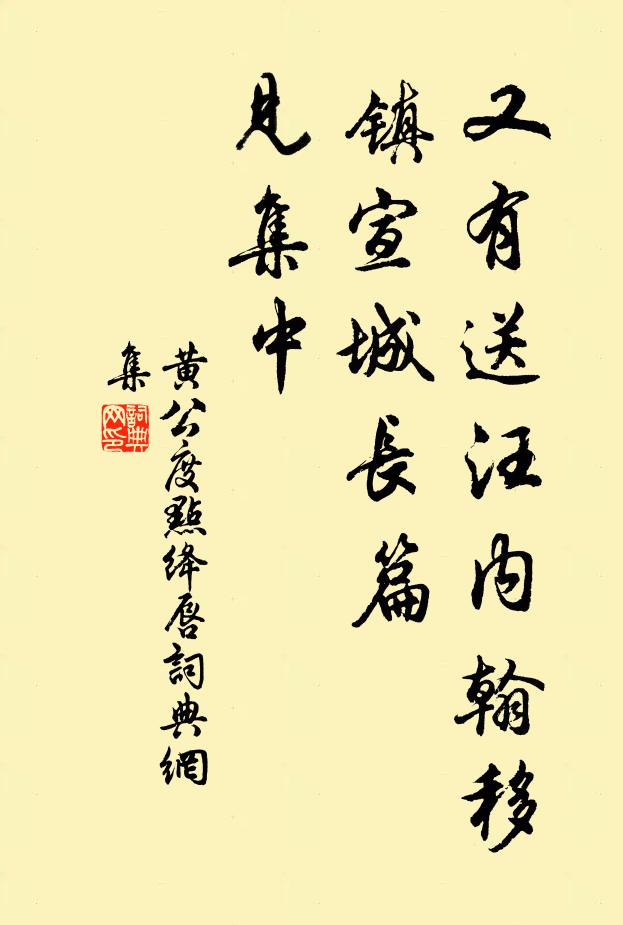 又有送汪内翰移
镇宣城長篇
見集中
黄公度點绛唇詞典網
集
詞典網印